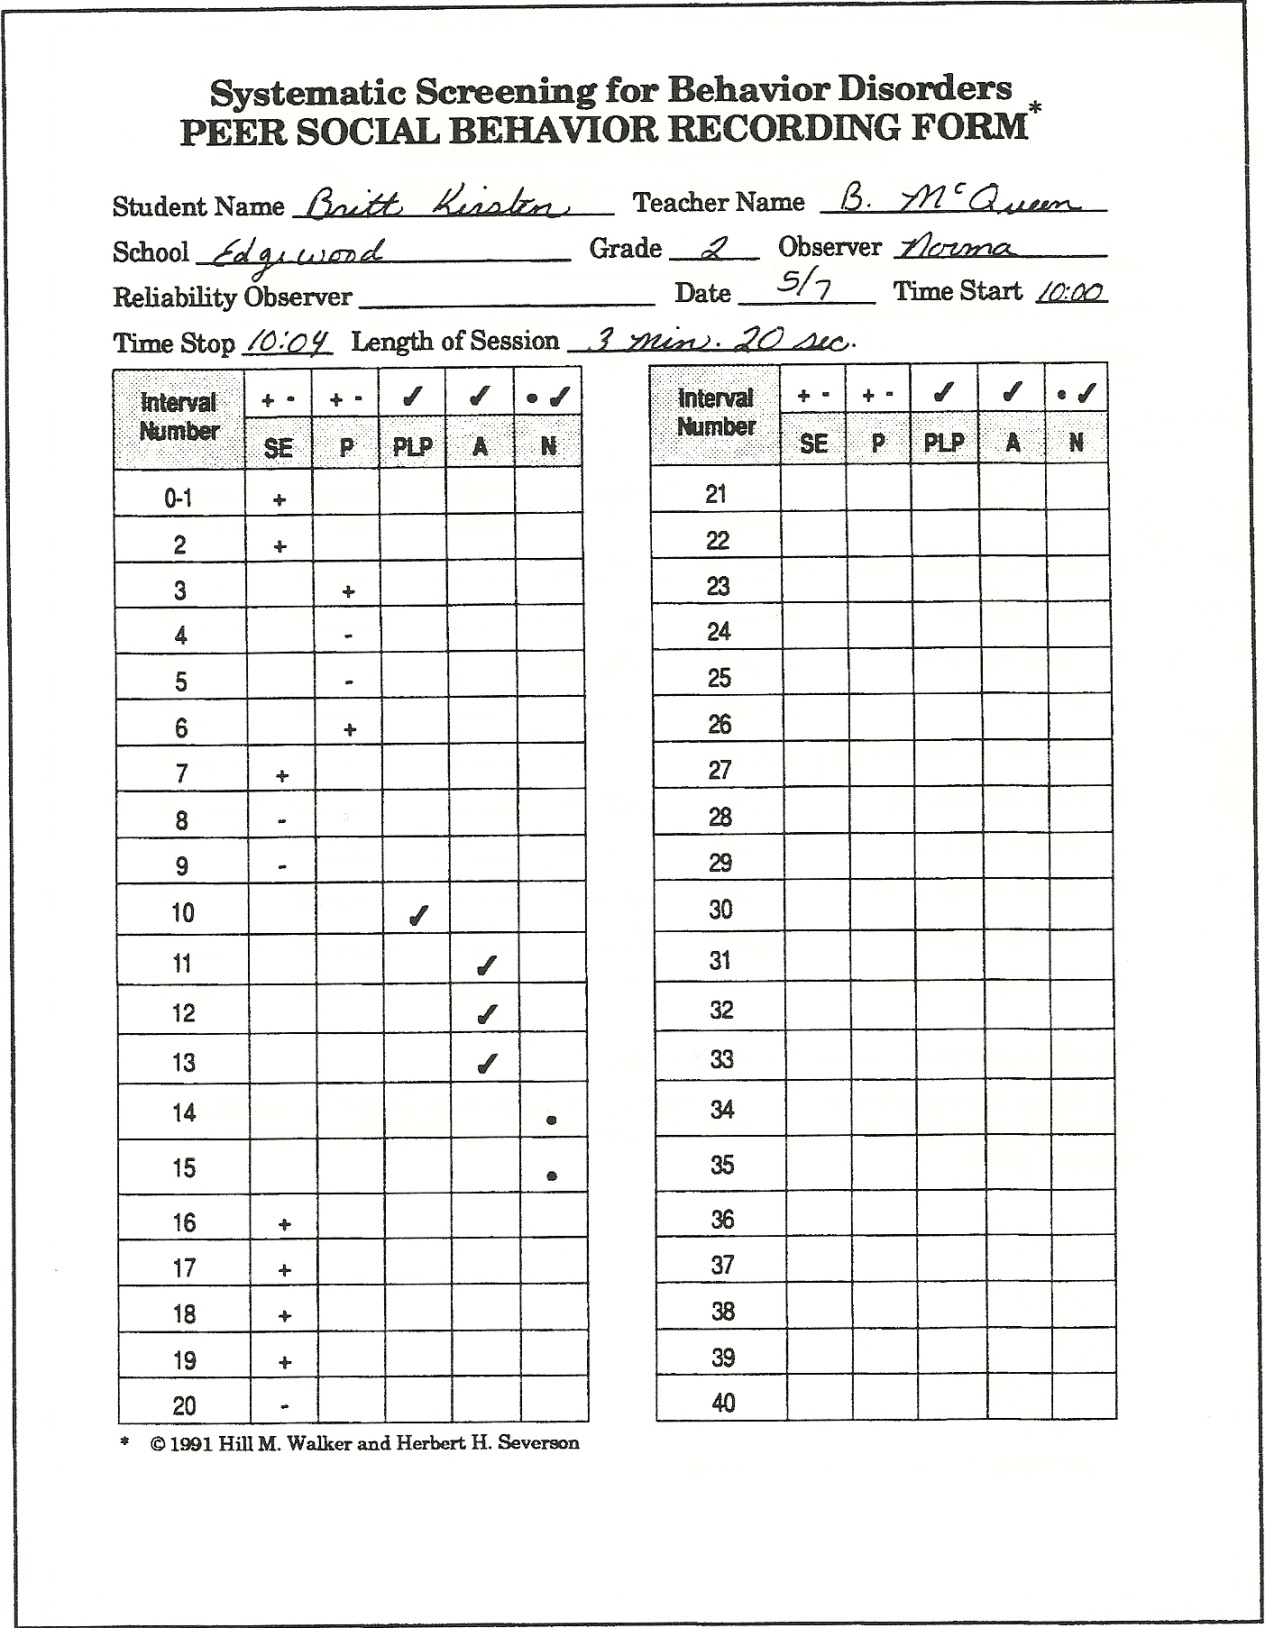 Systematic Screening for Behavior Disorders
PEER SOCIAL BEHAVIOR RECORDING FORM*
Student Name Britt Kirsten Teacher Name B. McQueen
School Edgewood Grade 2 Observer Norma
Reliability Observer Date 5/7 Time Start 10:00
Time Stop 10:04 Length of Session 3 min. 20 sec.
Interval Number + - + - ✓ ✓ • ✓
SE P PLP A N
0-1 +
2 +
3 +
4 -
5 -
6 +
7 +
8 -
9 -
10 ✓
11 ✓
12 ✓
13 ✓
14 •
15 •
16 +
17 +
18 +
19 +
20 -
Interval Number + - + - ✓ ✓ • ✓
SE P PLP A N
21
22
23
24
25
26
27
28
29
30
31
32
33
34
35
36
37
38
39
40
* © 1991 Hill M. Walker and Herbert H. Severson